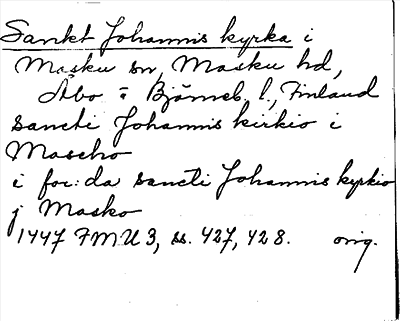 Sankt Johannis kyrka i
Masku sn, Masku hd,
Åbo = Björneb. l., Finland
sancti Johannis kirkio i
Mascho
i for:da sancti Johannis kyrkio
j Masko
1447 FMU 3, ss. 427, 428. orig.